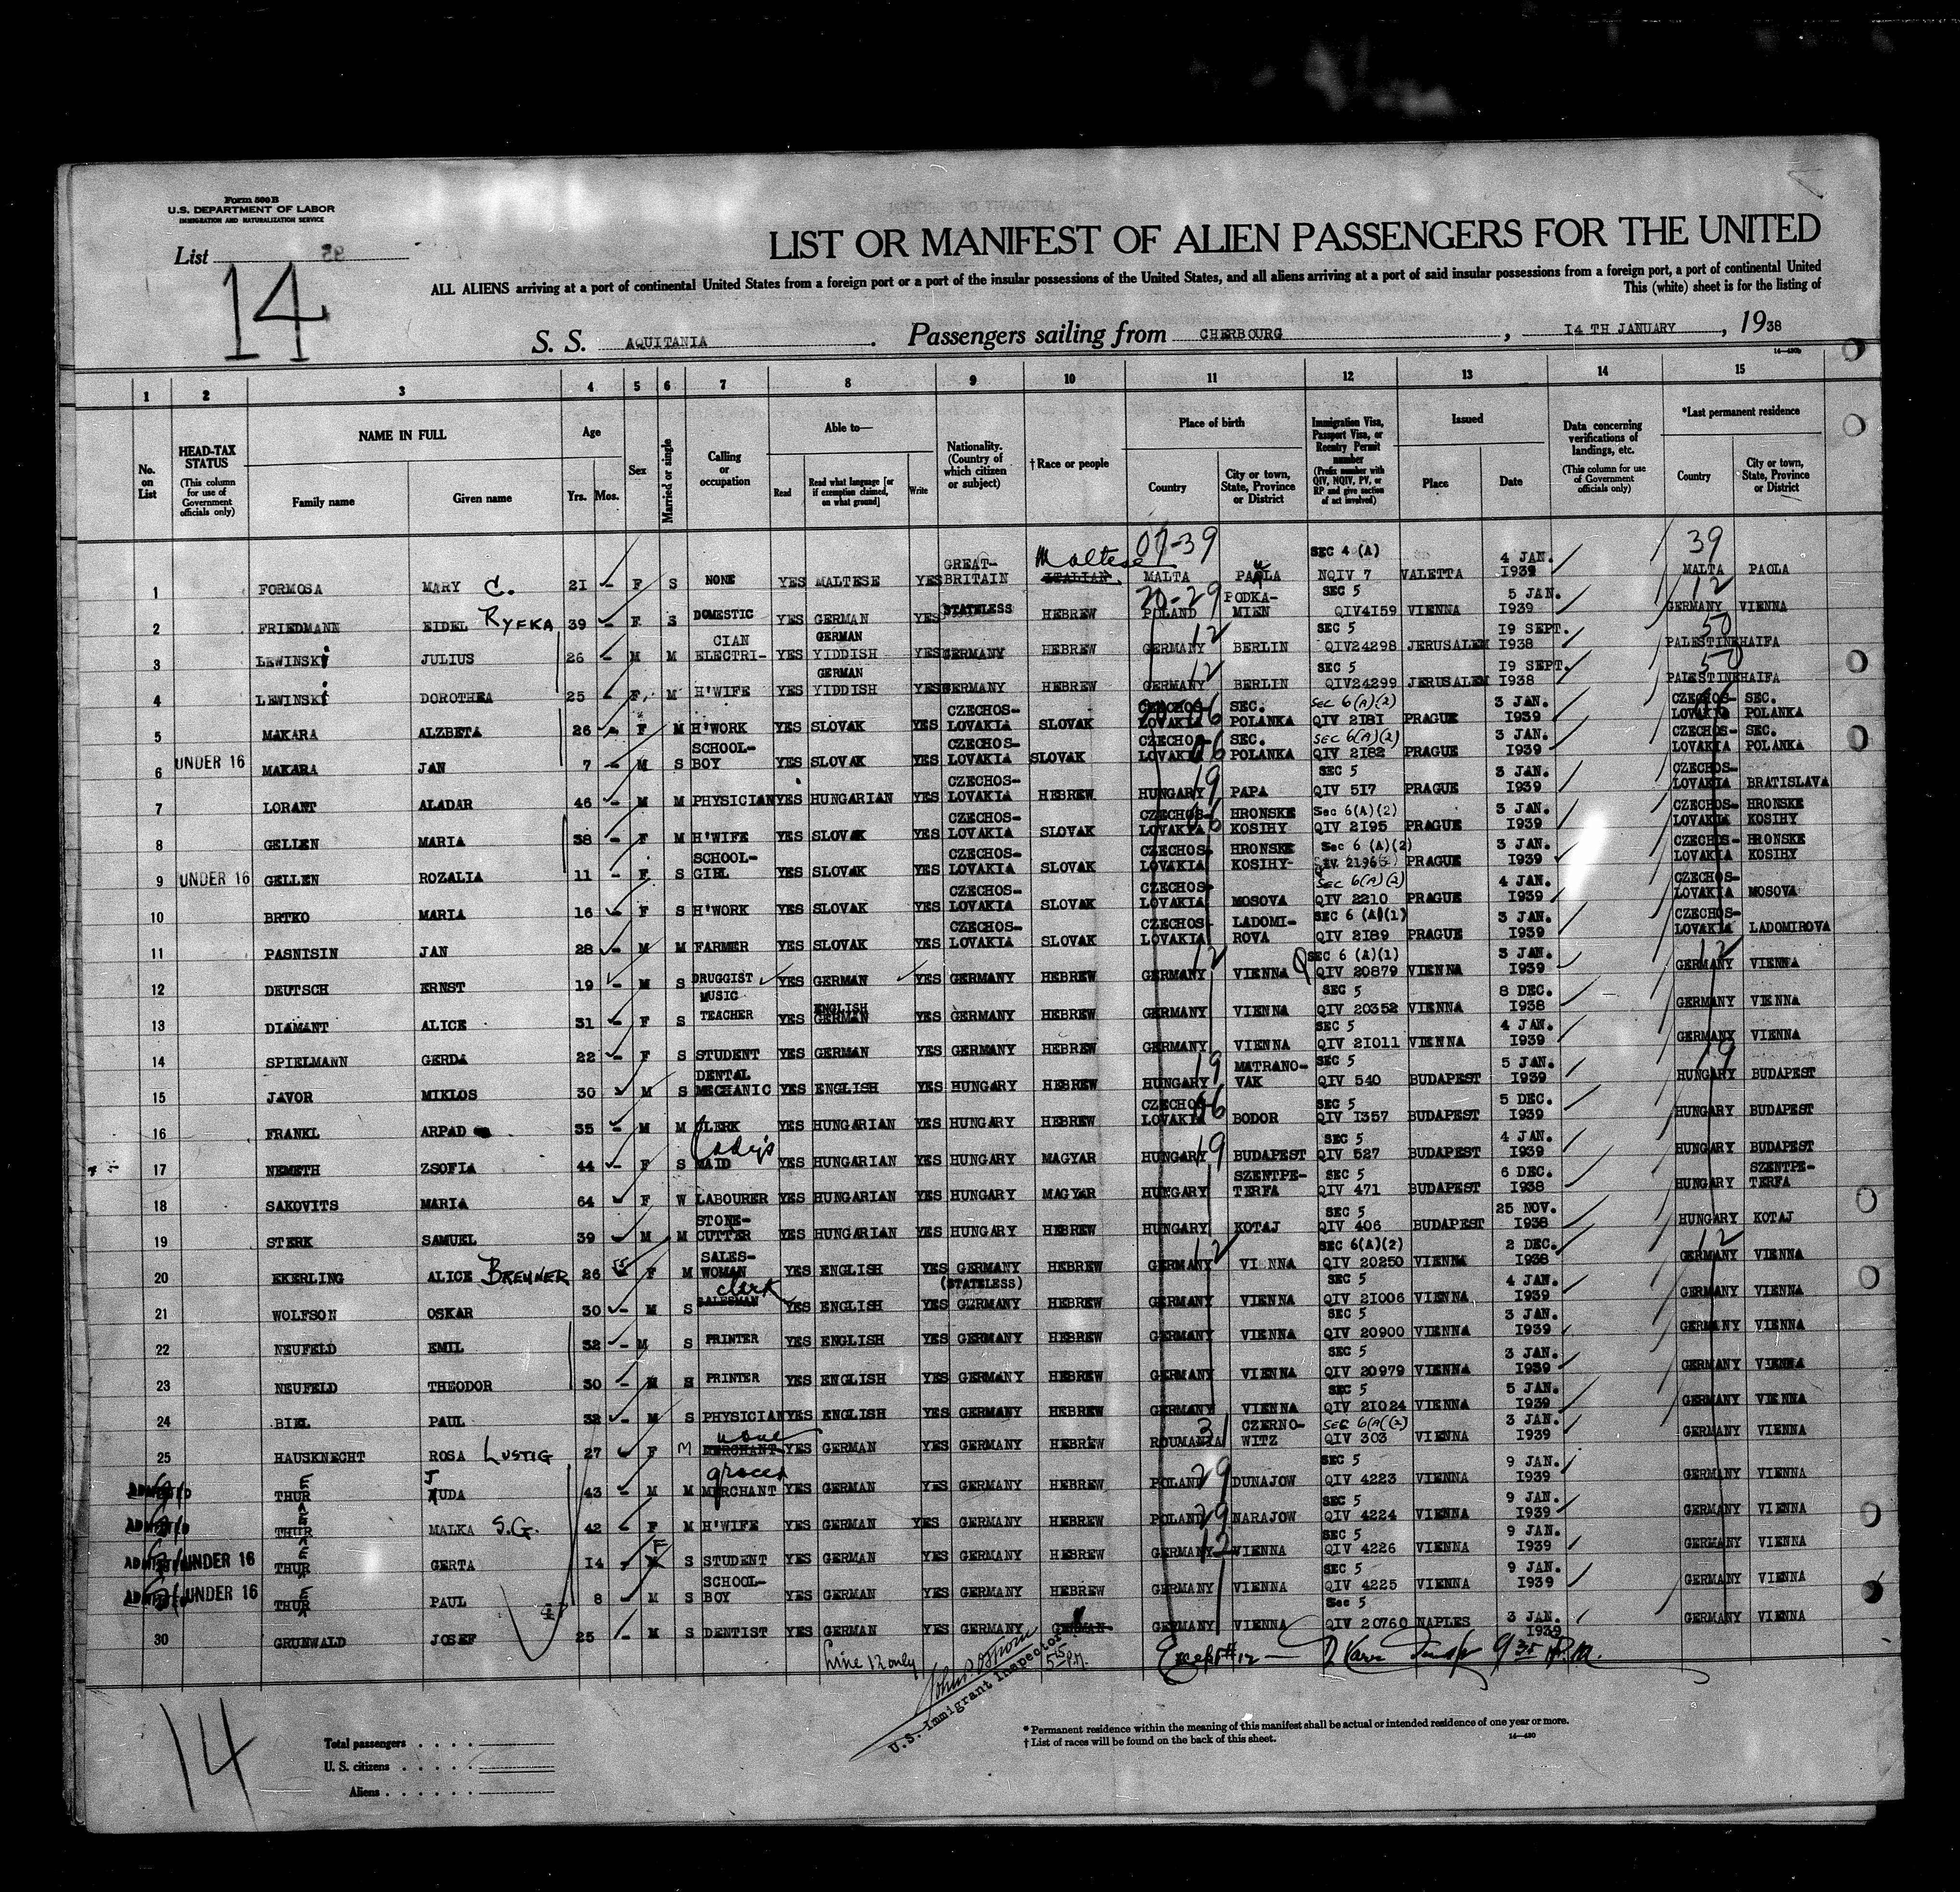 Form 500 B
U.S. DEPARTMENT OF LABOR
IMMIGRATION AND NATURALIZATION SERVICE
List
14
LIST OR MANIFEST OF ALIEN PASSENGERS FOR THE UNITED
ALL ALIENS arriving at a port of continental United States from a foreign port or a port of the insular possessions of the United States, and all aliens arriving at a port of said insular possessions from a foreign port, a port of continental United
This (white) sheet is for the listing of
S. S. AQUITANIA. Passengers sailing from CHERBOURG, 14 TH JANUARY, 1938
1 2 3 4 5 6 7 8 9 10 11 12 13 14 15
No. on List
HEAD-TAX STATUS (This column for use of Government officials only)
NAME IN FULL Family name Given name
Age Yrs. Mos.
Sex
Married or single
Calling or occupation
Able to— Read Read what language [or if exemption claimed, on what ground] Write
Nationality. (Country of which citizen or subject)
† Race or people
Place of birth Country City or town, State, Province or District
Immigration Visa, Passport Visa, or Reentry Permit number (Prefix number with QIV, NQIV, PV, or RP and give section of act involved)
Issued Place Date
Data concerning verifications of landings, etc. (This column for use of Government officials only)
*Last permanent residence Country City or town, State, Province or District
1 FORMOSA MARY C. 21 F S NONE YES MALTESE YES GREAT-BRITAIN ITALIAN Maltese 07-39 MALTA PAOLA SEC 4 (A) NQIV 7 VALETTA 4 JAN. 1939 39 MALTA PAOLA
2 FRIEDMANN EIDEL RYFKA 39 F S DOMESTIC YES GERMAN YES STATELESS HEBREW 20-29 POLAND PODKA-MIEN SEC 5 QIV4159 VIENNA 5 JAN. 1939 12 GERMANY VIENNA
3 LEWINSKI JULIUS 26 M M ELECTRI-CIAN YES GERMAN YIDDISH YES GERMANY HEBREW 12 GERMANY BERLIN SEC 5 QIV24298 JERUSALEM 19 SEPT. 1938 50 PALESTINE HAIFA
4 LEWINSKI DOROTHEA 25 F M H'WIFE YES GERMAN YIDDISH YES GERMANY HEBREW 12 GERMANY BERLIN SEC 5 QIV24299 JERUSALEM 19 SEPT. 1938 50 PALESTINE HAIFA
5 MAKARA ALZBETA 26 F M H'WORK YES SLOVAK YES CZECHOS-LOVAKIA SLOVAK CZECHOS-LOVAKIA SEC. POLANKA SEC 6(A)(2) QIV 2181 PRAGUE 3 JAN. 1939 CZECHOS-LOVAKIA SEC. POLANKA
6 UNDER 16 MAKARA JAN 7 M S SCHOOL-BOY YES SLOVAK YES CZECHOS-LOVAKIA SLOVAK CZECHOS-LOVAKIA SEC. POLANKA SEC 6(A)(2) QIV 2182 PRAGUE 3 JAN. 1939 CZECHOS-LOVAKIA SEC. POLANKA
7 LORANT ALADAR 46 M M PHYSICIAN YES HUNGARIAN YES CZECHOS-LOVAKIA HEBREW 19 HUNGARY PAPA SEC 5 QIV 517 PRAGUE 3 JAN. 1939 CZECHOS-LOVAKIA BRATISLAVA
8 GELLEN MARIA 38 F M H'WIFE YES SLOVAK YES CZECHOS-LOVAKIA SLOVAK CZECHOS-LOVAKIA HRONSKE KOSIHY Sec 6(A)(2) QIV 2195 PRAGUE 3 JAN. 1939 CZECHOS-LOVAKIA HRONSKE KOSIHY
9 UNDER 16 GELLEN ROZALIA 11 F S SCHOOL-GIRL YES SLOVAK YES CZECHOS-LOVAKIA SLOVAK CZECHOS-LOVAKIA HRONSKE KOSIHY- Sec 6 (A)(2) PRAGUE 3 JAN. 1939 CZECHOS-LOVAKIA HRONSKE KOSIHY
10 BRTKO MARIA 16 F S H'WORK YES SLOVAK YES CZECHOS-LOVAKIA SLOVAK CZECHOS-LOVAKIA MOSOVA SEC 6(A)(2) QIV 2210 PRAGUE 4 JAN. 1939 CZECHOS-LOVAKIA MOSOVA
11 PASNISIN JAN 28 M M FARMER YES SLOVAK YES CZECHOS-LOVAKIA SLOVAK CZECHOS-LOVAKIA LADOMI-ROVA SEC 6 (A)(1) QIV 2189 PRAGUE 3 JAN. 1939 CZECHOS-LOVAKIA LADOMIROVA
12 DEUTSCH ERNST 19 M S DRUGGIST YES GERMAN YES GERMANY HEBREW 12 GERMANY VIENNA SEC 6 (A)(1) QIV 20879 VIENNA 3 JAN. 1939 12 GERMANY VIENNA
13 DIAMANT ALICE 31 F S MUSIC TEACHER YES ENGLISH GERMAN YES GERMANY HEBREW GERMANY VIENNA SEC 5 QIV 20352 VIENNA 8 DEC. 1938 GERMANY VIENNA
14 SPIELMANN GERDA 22 F S STUDENT YES GERMAN YES GERMANY HEBREW GERMANY VIENNA SEC 5 QIV 21011 VIENNA 4 JAN. 1939 GERMANY VIENNA
15 JAVOR MIKLOS 30 M S DENTAL MECHANIC YES ENGLISH YES HUNGARY HEBREW 19 HUNGARY MATRANO-VAK SEC 5 QIV 540 BUDAPEST 5 JAN. 1939 19 HUNGARY BUDAPEST
16 FRANKL ARPAD 35 M M CLERK YES HUNGARIAN YES HUNGARY HEBREW CZECHOS LOVAKIA BODOR SEC 5 QIV 1357 BUDAPEST 5 DEC. 1939 HUNGARY BUDAPEST
17 NEMETH ZSOFIA 44 F S Lady's MAID YES HUNGARIAN YES HUNGARY MAGYAR 19 HUNGARY BUDAPEST SEC 5 QIV 527 BUDAPEST 4 JAN. 1939 HUNGARY BUDAPEST
18 SAKOVITS MARIA 64 F W LABOURER YES HUNGARIAN YES HUNGARY MAGYAR HUNGARY SZENTPE-TERFA SEC 5 QIV 471 BUDAPEST 6 DEC. 1938 HUNGARY SZENTPE-TERFA
19 STERK SAMUEL 39 M M STONE-CUTTER YES HUNGARIAN YES HUNGARY HEBREW HUNGARY KOTAJ SEC 5 QIV 406 BUDAPEST 25 NOV. 1938 HUNGARY KOTAJ
20 EKERLING ALICE BREMNER 26 F M SALES-WOMAN YES ENGLISH YES GERMANY HEBREW 12 GERMANY VIENNA SEC 6(A)(2) QIV 20250 VIENNA 2 DEC. 1938 12 GERMANY VIENNA
21 WOLFSON OSKAR 30 M S SALESMAN clerk YES ENGLISH YES (STATELESS) GERMANY HEBREW GERMANY VIENNA SEC 5 QIV 21006 VIENNA 4 JAN. 1939 GERMANY VIENNA
22 NEUFELD EMIL 32 M S PRINTER YES ENGLISH YES GERMANY HEBREW GERMANY VIENNA SEC 5 QIV 20900 VIENNA 3 JAN. 1939 GERMANY VIENNA
23 NEUFELD THEODOR 30 M PRINTER YES ENGLISH YES GERMANY HEBREW GERMANY VIENNA SEC 5 QIV 20979 VIENNA 3 JAN. 1939 GERMANY VIENNA
24 BIEL PAUL 32 M S PHYSICIAN YES ENGLISH YES GERMANY HEBREW GERMANY VIENNA SEC 5 QIV 21024 VIENNA 5 JAN. 1939 GERMANY VIENNA
25 HAUSKNECHT ROSA LUSTIG 27 F M MERCHANT none YES GERMAN YES GERMANY HEBREW 31 ROUMANIA CZERNO-WITZ SEC 6(A)(2) QIV 303 VIENNA 3 JAN. 1939 GERMANY VIENNA
ADMITTED THUR JUDA 43 M M grocer MERCHANT YES GERMAN YES GERMANY HEBREW 29 POLAND DUNAJOW SEC 5 QIV 4223 VIENNA 9 JAN. 1939 GERMANY VIENNA
ADMITTED THUR MALKA S.G. 42 F M H'WIFE YES GERMAN YES GERMANY HEBREW 29 POLAND NARAJOW SEC 5 QIV 4224 VIENNA 9 JAN. 1939 GERMANY VIENNA
ADMITTED UNDER 16 THUR GERTA 14 F S STUDENT YES GERMAN YES GERMANY HEBREW 12 GERMANY VIENNA SEC 5 QIV 4226 VIENNA 9 JAN. 1939 GERMANY VIENNA
ADMITTED UNDER 16 THUR PAUL 8 M S SCHOOL-BOY YES GERMAN YES GERMANY HEBREW GERMANY VIENNA SEC 5 QIV 4225 VIENNA 9 JAN. 1939 GERMANY VIENNA
30 GRUNWALD JOSEF 25 M S DENTIST YES GERMAN YES GERMANY GERMAN GERMANY VIENNA Sec 5 QIV 20760 NAPLES 3 JAN. 1939 GERMANY VIENNA
Line 12 only
U.S. Immigrant Inspector
5:15 P.M.
Except #12 — 9 35 P.M.
14
Total passengers
U. S. citizens
Aliens
* Permanent residence within the meaning of this manifest shall be actual or intended residence of one year or more.
† List of races will be found on the back of this sheet.
14—430